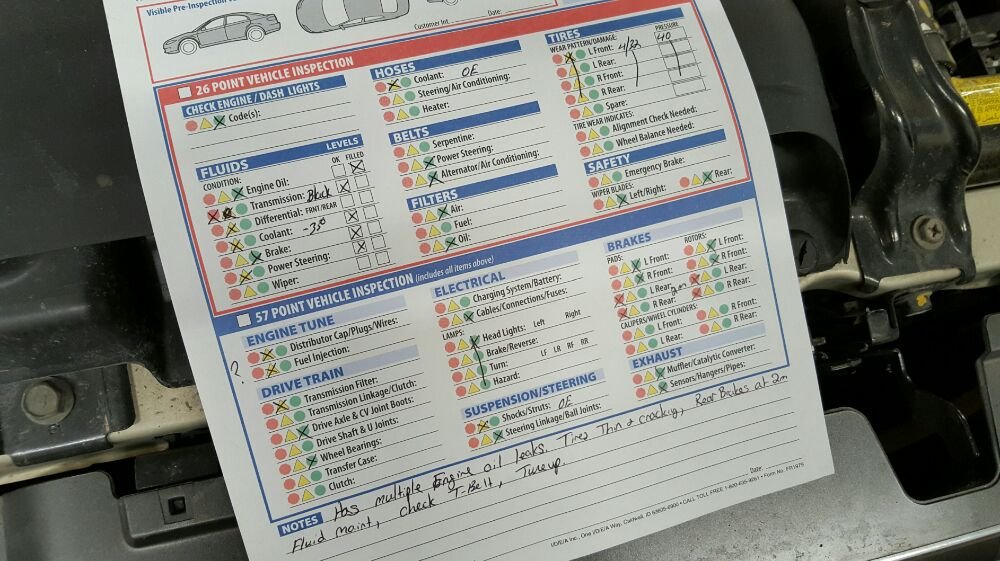 Visible Pre-Inspection
Customer Int. Date:
26 POINT VEHICLE INSPECTION
CHECK ENGINE / DASH LIGHTS
Code(s):
FLUIDS
LEVELS
CONDITION:
OK FILLED
Engine Oil:
Transmission: Black
Differential: FRNT/REAR
Coolant: -35°
Brake:
Power Steering:
Wiper:
HOSES
Coolant: OE
Steering/Air Conditioning:
Heater:
BELTS
Serpentine:
Power Steering:
Alternator/Air Conditioning:
FILTERS
Air:
Fuel:
Oil:
TIRES
PRESSURE
WEAR PATTERN/DAMAGE:
L Front: 4/32 40
L Rear:
R Front:
R Rear:
Spare:
TIRE WEAR INDICATES:
Alignment Check Needed:
Wheel Balance Needed:
SAFETY
Emergency Brake:
WIPER BLADES:
Left/Right: Rear:
57 POINT VEHICLE INSPECTION (includes all items above)
ENGINE TUNE
Distributor Cap/Plugs/Wires:
? Fuel Injection:
DRIVE TRAIN
Transmission Filter:
Transmission Linkage/Clutch:
Drive Axle & CV Joint Boots:
Drive Shaft & U Joints:
Wheel Bearings:
Transfer Case:
Clutch:
ELECTRICAL
Charging System/Battery:
Cables/Connections/Fuses:
LAMPS: Left Right
Head Lights:
Brake/Reverse:
LF LR RF RR
Turn:
Hazard:
SUSPENSION/STEERING
Shocks/Struts: OE
Steering Linkage/Ball Joints:
BRAKES
PADS: ROTORS:
L Front: L Front:
R Front: R Front:
L Rear: 2m L Rear:
R Rear: R Rear:
CALIPERS/WHEEL CYLINDERS:
L Front: R Front:
L Rear: R Rear:
EXHAUST
Muffler/Catalytic Converter:
Sensors/Hangers/Pipes:
NOTES Has multiple Engine oil leaks. Tires Thin & cracking, Rear Brakes at 2m
Fluid maint, check T-Belt, Tuneup.
Date:
I/D/E/A Inc., One I/D/E/A Way, Caldwell, ID 83605-6900 • CALL TOLL FREE 1-800-635-9261 • Form No. FR1975